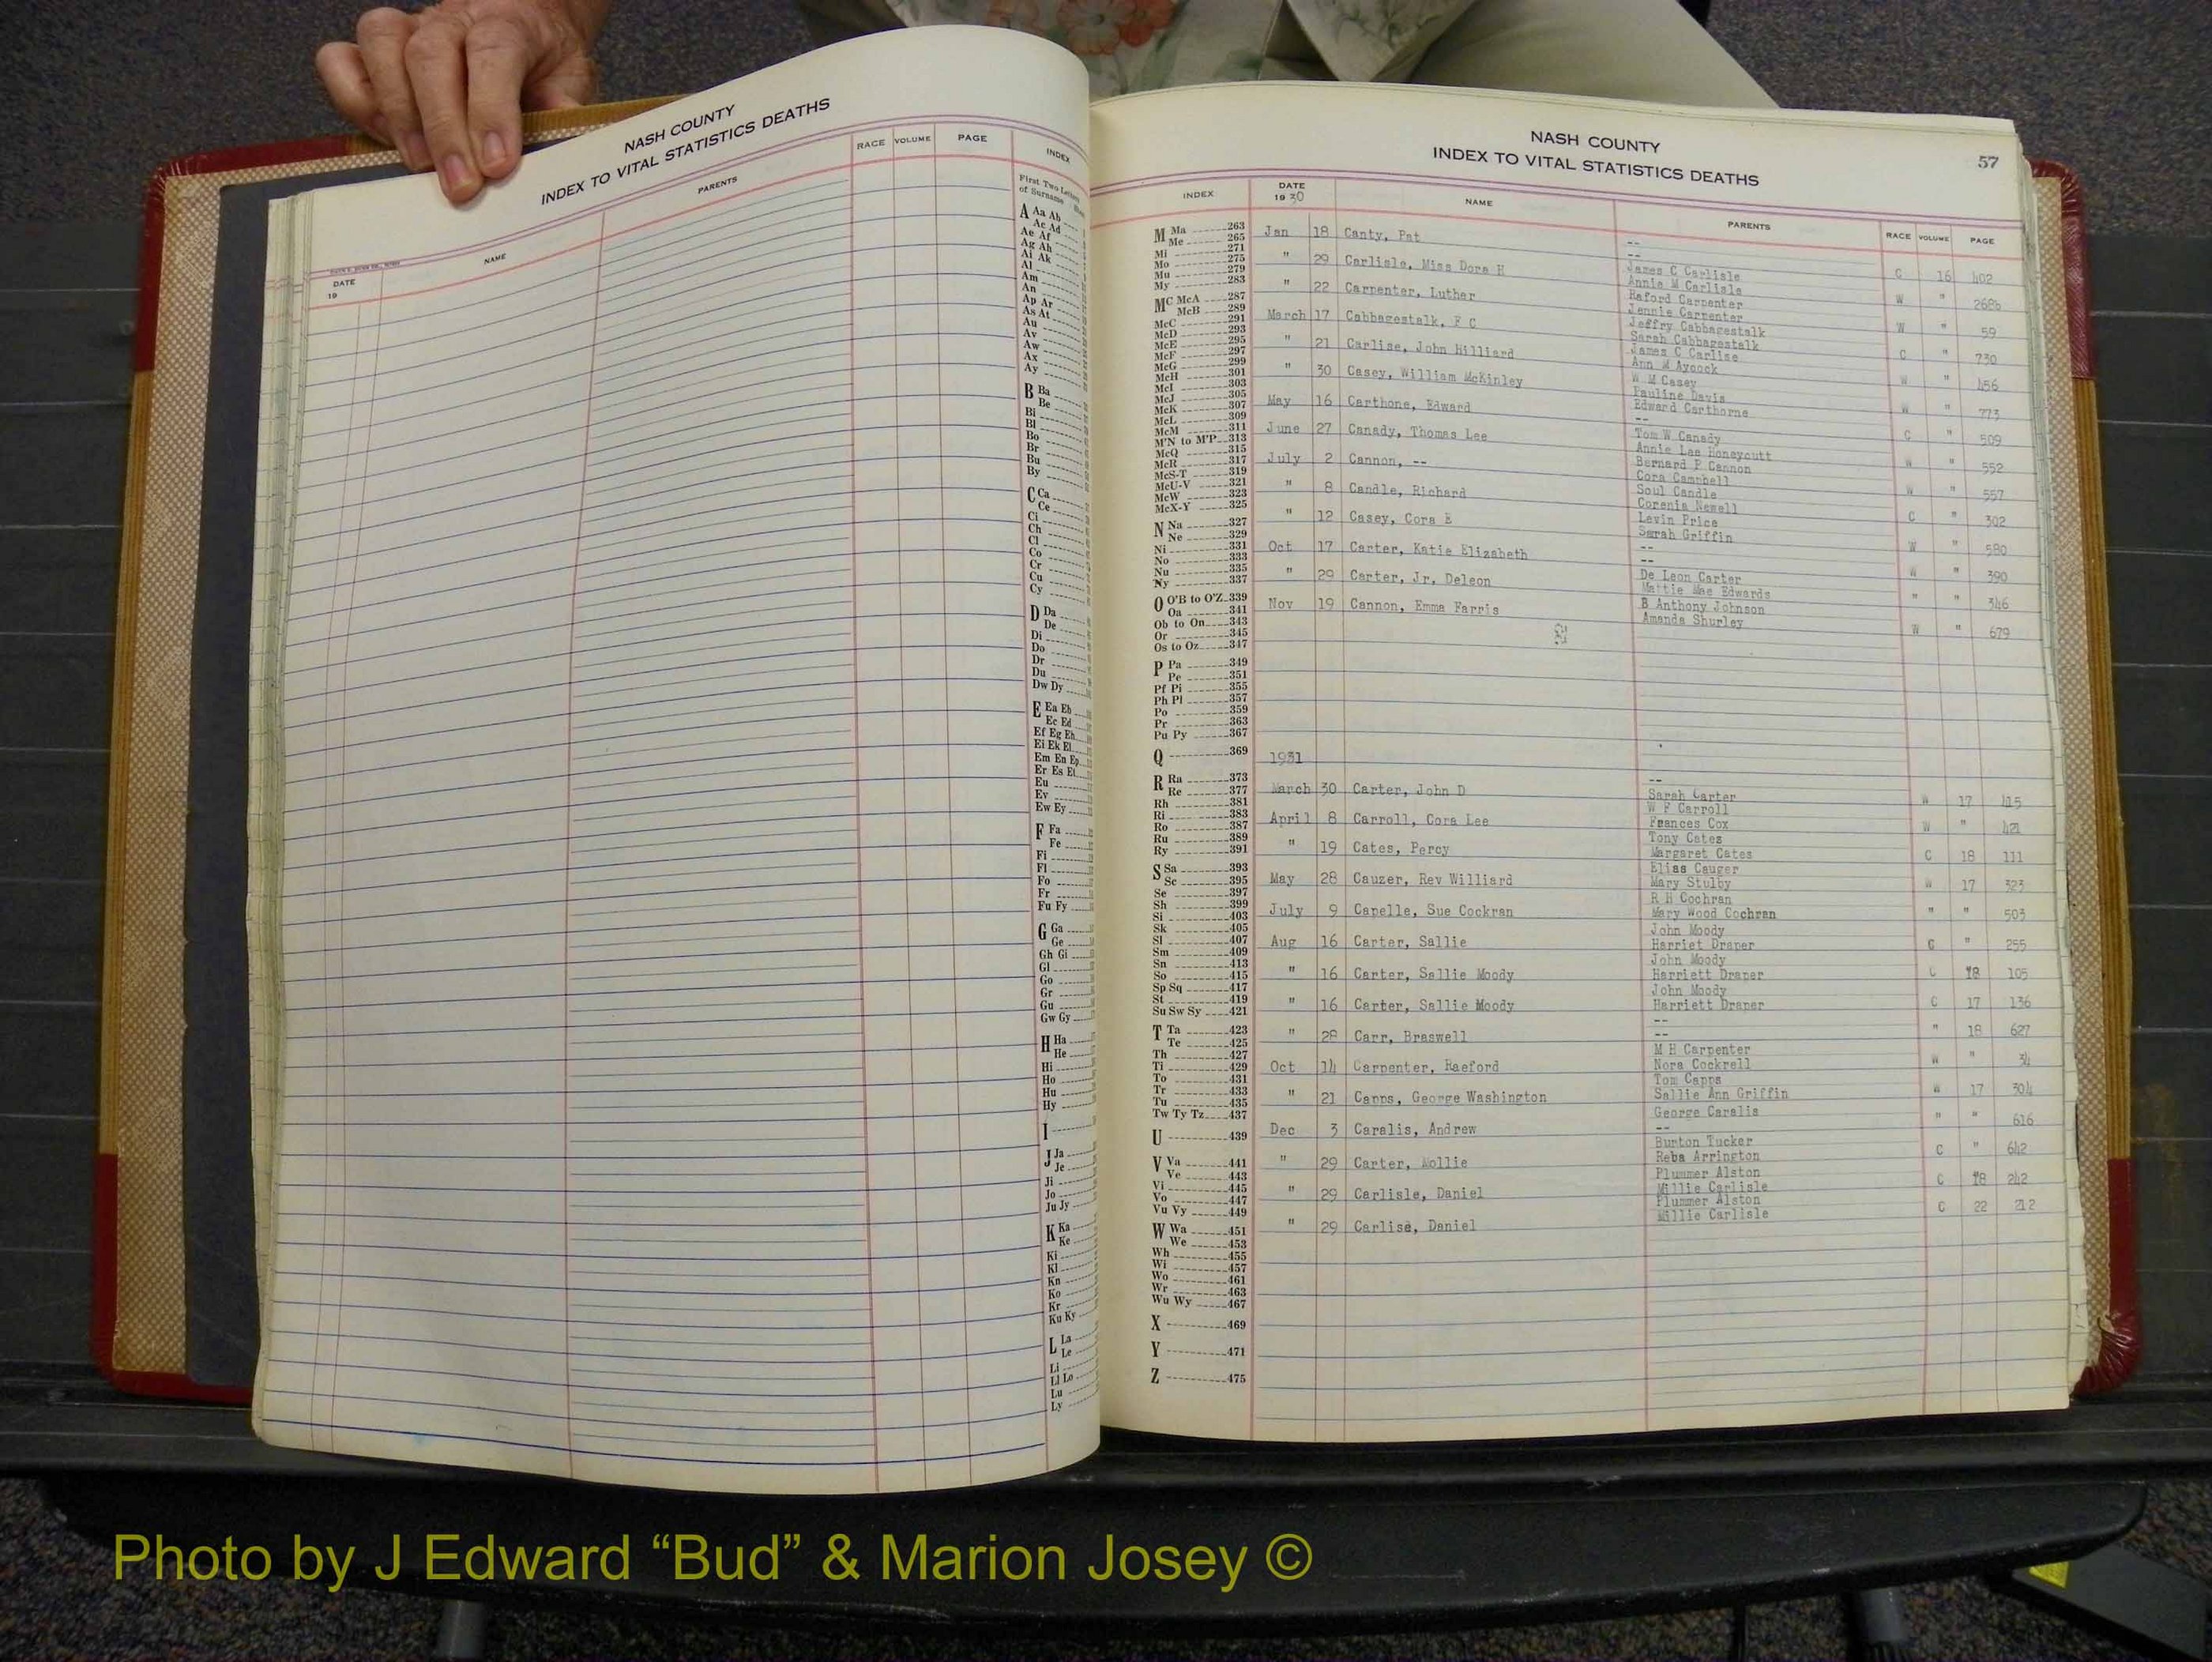 NASH COUNTY
INDEX TO VITAL STATISTICS DEATHS
DATE
19
NAME
PARENTS
RACE
VOLUME
PAGE
INDEX
First Two Letters
of Surname
A Aa Ab
Ac Ad
Ae Af
Ag Ah
Ai Ak
Al
Am
An
Ap Ar
As At
Au
Av
Aw
Ax
Ay
B Ba
Be
Bi
Bl
Bo
Br
Bu
By
C Ca
Ce
Ci
Ch
Cl
Co
Cr
Cu
Cy
D Da
De
Di
Do
Dr
Du
Dw Dy
E Ea Eb
Ec Ed
Ef Eg Eh
Ei Ek El
Em En Ep
Er Es Et
Eu
Ev
Ew Ey
F Fa
Fe
Fi
Fl
Fo
Fr
Fu Fy
G Ga
Ge
Gh Gi
Gl
Go
Gr
Gu
Gw Gy
H Ha
He
Hi
Ho
Hu
Hy
I
J Ja
Je
Ji
Jo
Ju Jy
K Ka
Ke
Ki
Kl
Kn
Ko
Kr
Ku Ky
L La
Le
Li
Ll Lo
Lu
Ly
NASH COUNTY
INDEX TO VITAL STATISTICS DEATHS
57
INDEX
DATE
19 30
NAME
PARENTS
RACE
VOLUME
PAGE
M Ma 263
Me 265
Mi 271
Mo 275
Mu 279
My 283
Mc McA 287
McB 289
McC 291
McD 293
McE 295
McF 297
McG 299
McH 301
McI 303
McJ 305
McK 307
McL 309
McM 311
M'N to M'P 313
McQ 315
McR 317
McS-T 319
McU-V 321
McW 323
McX-Y 325
N Na 327
Ne 329
Ni 331
No 333
Nu 335
Ny 337
O O'B to O'Z 339
Oa 341
Ob to On 343
Or 345
Os to Oz 347
P Pa 349
Pe 351
Pf Pi 355
Ph Pl 357
Po 359
Pr 363
Pu Py 367
Q 369
R Ra 373
Re 377
Rh 381
Ri 383
Ro 387
Ru 389
Ry 391
S Sa 393
Sc 395
Se 397
Sh 399
Si 403
Sk 405
Sl 407
Sm 409
Sn 413
So 415
Sp Sq 417
St 419
Su Sw Sy 421
T Ta 423
Te 425
Th 427
Ti 429
To 431
Tr 433
Tu 435
Tw Ty Tz 437
U 439
V Va 441
Ve 443
Vi 445
Vo 447
Vu Vy 449
W Wa 451
We 453
Wh 455
Wi 457
Wo 461
Wr 463
Wu Wy 467
X 469
Y 471
Z 475
Jan 18 Canty, Pat -- -- C 16 402
" 29 Carlisle, Miss Dora H James C Carlisle Annie M Carlisle W " 268b
" 22 Carpenter, Luther Raford Carpenter Jennie Carpenter W " 59
March 17 Cabbagestalk, F C Jeffry Cabbagestalk Sarah Cabbagestalk C " 730
" 21 Carlise, John Hilliard James C Carlise Ann M Aycock W " 456
" 30 Casey, William McKinley W M Casey Pauline Davis W " 773
May 16 Carthone, Edward Edward Carthorne -- C " 509
June 27 Canady, Thomas Lee Tom W Canady Annie Lee Honeycutt W " 552
July 2 Cannon, -- Bernard P Cannon Cora Campbell W " 557
" 8 Candle, Richard Soul Candle Corenia Newell C " 302
" 12 Casey, Cora E Levin Price Sarah Griffin W " 580
Oct 17 Carter, Katie Elizabeth -- -- W " 390
" 29 Carter, Jr, Deleon De Leon Carter Mattie Mae Edwards " " 346
Nov 19 Cannon, Emma Farris B Anthony Johnson Amanda Shurley W " 679
1931
March 30 Carter, John D -- Sarah Carter W 17 415
April 8 Carroll, Cora Lee W F Carroll Frances Cox W " 421
" 19 Cates, Percy Tony Cates Margaret Cates C 18 111
May 28 Cauzer, Rev Williard Elias Cauger Mary Stulby W 17 323
July 9 Capelle, Sue Cockran R H Cochran Mary Wood Cochran " " 503
Aug 16 Carter, Sallie John Moody Harriet Draper C " 255
" 16 Carter, Sallie Moody John Moody Harriett Draper C 18 105
" 16 Carter, Sallie Moody John Moody Harriett Draper C 17 136
" 28 Carr, Braswell -- -- " 18 627
Oct 14 Carpenter, Raeford M H Carpenter Nora Cockrell W " 34
" 21 Capps, George Washington Tom Capps Sallie Ann Griffin W 17 304
Dec 3 Caralis, Andrew George Caralis -- " " 616
" 29 Carter, Mollie Burton Tucker Reba Arrington C " 642
" 29 Carlisle, Daniel Plummer Alston Millie Carlisle C 18 242
" 29 Carlise, Daniel Plummer Alston Millie Carlisle C 22 212
Photo by J Edward “Bud” & Marion Josey ©